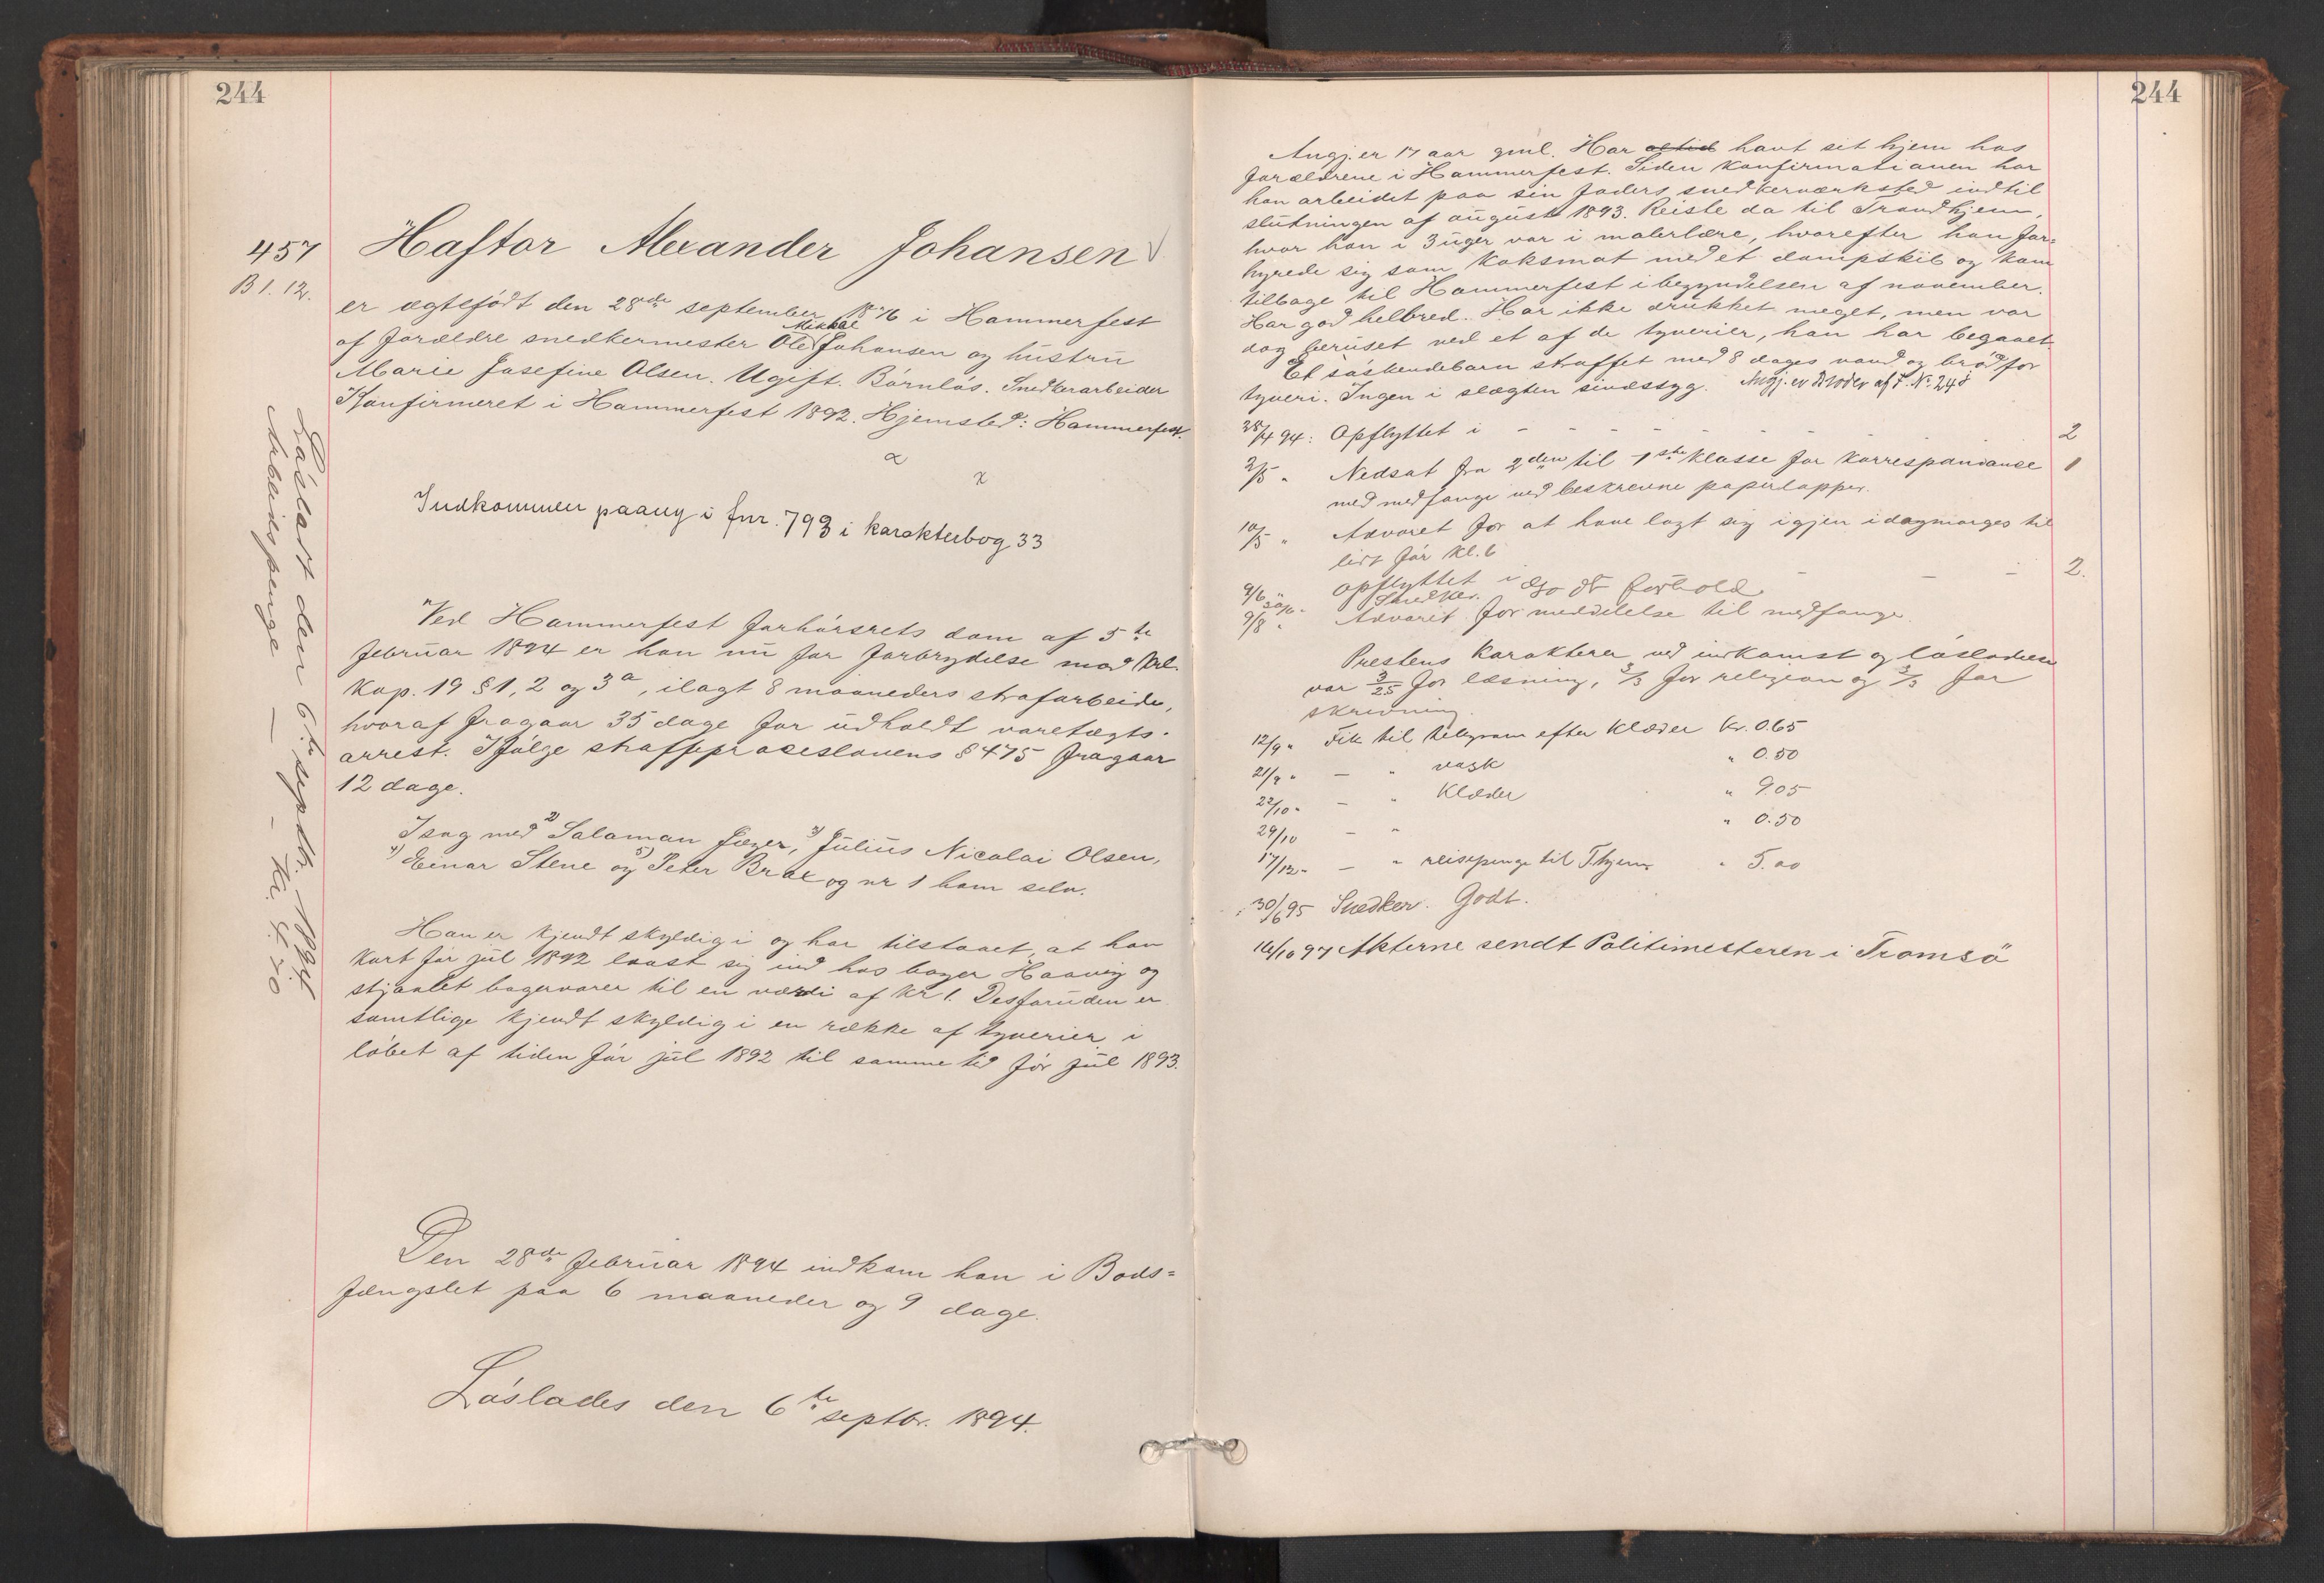 244
457
B 1. 12.
Haftor Alexander Johansen
er ægtefödt den 28de september 1876 i Hammerfest
Mikkal
af forældre snedkermester Ole Johansen og hüstrü
Marie Josefine Olsen. Ugift. Börnlös. Snedkerarbeider
Konfirmeret i Hammerfest 1892. Hjemsted: Hammerfest.
Indkommen paany i fnr. 793 i karakterbog 33
Lösladt den 6te septbr. 1894
Arbeidspenge — – Kr. 4.70
Ved Hammerfest forhörsrets dom af 5te
februar 1894 er han nü for forbrydelse mod Krl.
Kap. 19 § 1, 2 og 3a, ilagt 8 maaneders strafarbeide,
hvoraf fragaar 35 dage for üdholdt varetægts-
arrest. Ifölge straffeproceslovens § 475 fragaar
12 dage.
I sag med 2) Salaman Jæger, 3) Jülius Nicolai Olsen,
4) Einar Stene og 5) Peter Bræ og nr 1 ham selv.
Han er kjendt skyldig i og har tilstaaet, at han
kort för jül 1892 laast sig ind hos bager Haavig og
stjaalet bagervarer til en værdi af kr 1. Desforüden er
samtlige kjendt skyldig i en række af tyverier i
löbet af tiden för jül 1892 til samme tid för jül 1893.
Den 28de februar 1894 indkom han i Bods=
fængslet paa 6 maaneder og 9 dage.
Löslades den 6te septbr. 1894.
244
Angj. er 17 aar gml. Har altid havt sit hjem hos
forældrene i Hammerfest. Siden konfirmationen har
han arbeidet paa sin faders snedkerværksted indtil
slütningen af aügust 1893. Reiste da til Trondhjem,
hvor han i 3 üger var i malerlære, hvorefter han for=
hyrede sig som koksmat med et dampskib og kom
tilbage til Hammerfest i begyndelsen af november.
Har god helbred. Har ikke drükket meget, men var
dog berüset ved et af de tyverier, han har begaaet.
Et söskendebarn straffet med 8 dages vand og bröd for
tyveri. Ingen i slægten sindssyg. Angj. er Broder af F. No. 248
28/4 94: Opflyttet i - - - - - - - 2
2/5 " Nedsat fra 2den til 1ste klasse for korrespondanse 1
med medfange ved beskrevne papirlapper.
10/5 " Advaret for at have lagt sig igjen idagmorges til
lidt för kl. 6
9/6 " opflyttet i - - - 2.
30/6 " Snedker. Godt forhold
9/8 " Advaret for meddelelse til medfange.
Prestens karakterer ved indkomst og lösladelse
var 3/2.5 for læsning, 3/3 for religion og 3/3 for
skrivning.
12/9 " Fik til telegram efter Klæder Kr. 0.65
21/9 " — " vask " 0.50
22/10 " — " Klæder " 9.05
29/10 — " " 0.50
17/12 " — " reisepenge til Thjem " 5.00
30/6 95 Snedker. Godt.
14/10 97 Akterne sendt Politimesteren i Tromsö